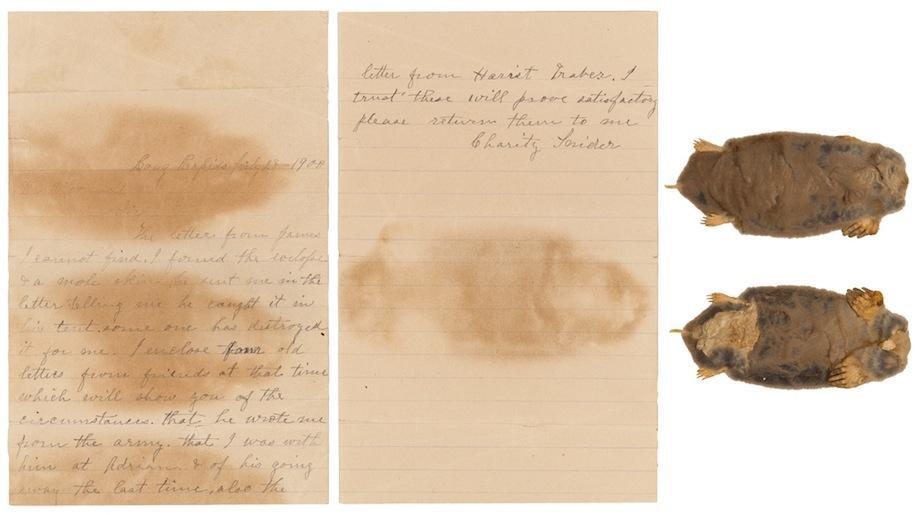 Long Rapids July 1900
Sir
The letter from James
I cannot find. I found the envelope
& a mole skin he sent me in the
letter telling me he caught it in
his tent. some one has destroyed
it for me. I enclose four old
letters from friends at that time
which will show you of the
circumstances. that he wrote me
from the army. that I was with
him at Adrian. & of his going
away the last time, also the
letter from Harist Traber. I
trust these will prove satisfactory
please return them to me
Charity Snider